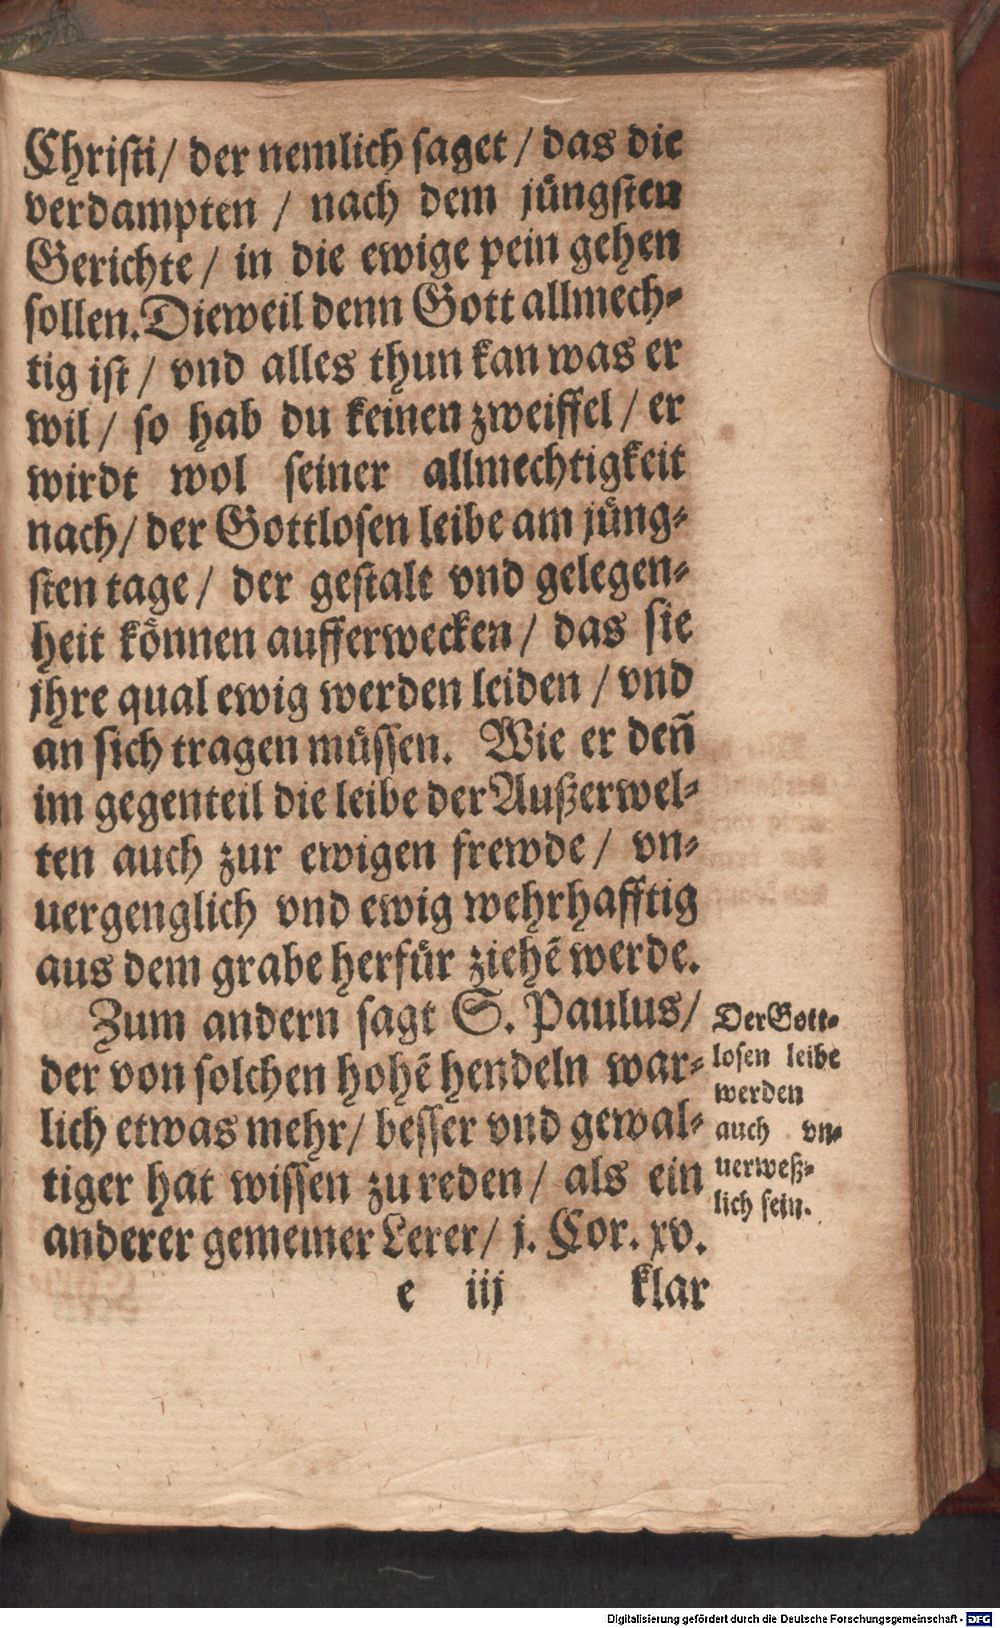 Chriſti/ der nemlich ſaget/ das die
verdampten / nach dem juͤngſten
Gerichte/ in die ewige pein gehen
ſollen. Dieweil denn Gott allmech⸗
tig iſt/ vnd alles thun kan was er
wil/ ſo hab du keinen zweiffel/ er
wirdt wol ſeiner allmechtigkeit
nach/ der Gottloſen leibe am juͤng⸗
ſten tage/ der geſtalt vnd gelegen⸗
heit koͤnnen aufferwecken/ das ſie
jhre qual ewig werden leiden/ vnd
an ſich tragen muͤſſen. Wie er den̄
im gegenteil die leibe der Außerwel⸗
ten auch zur ewigen frewde/ vn⸗
uergenglich vnd ewig wehrhafftig
aus dem grabe herfuͤr ziehē werde.
Zum andern ſagt S. Paulus/
der von ſolchen hohē hendeln war⸗
lich etwas mehr/ beſſer vnd gewal⸗
tiger hat wiſſen zu reden/ als ein
anderer gemeiner Lerer/ j. Cor. xv.
e iij klar
Der Gott⸗
loſen leibe
werden
auch vn⸗
uerweß⸗
lich ſein.
Digitalisierung gefördert durch die Deutsche Forschungsgemeinschaft - DFG